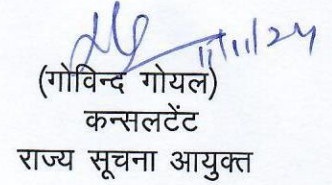 11/11/24
(गोविन्द गोयल)
कन्सलटेंट
राज्य सूचना आयुक्त